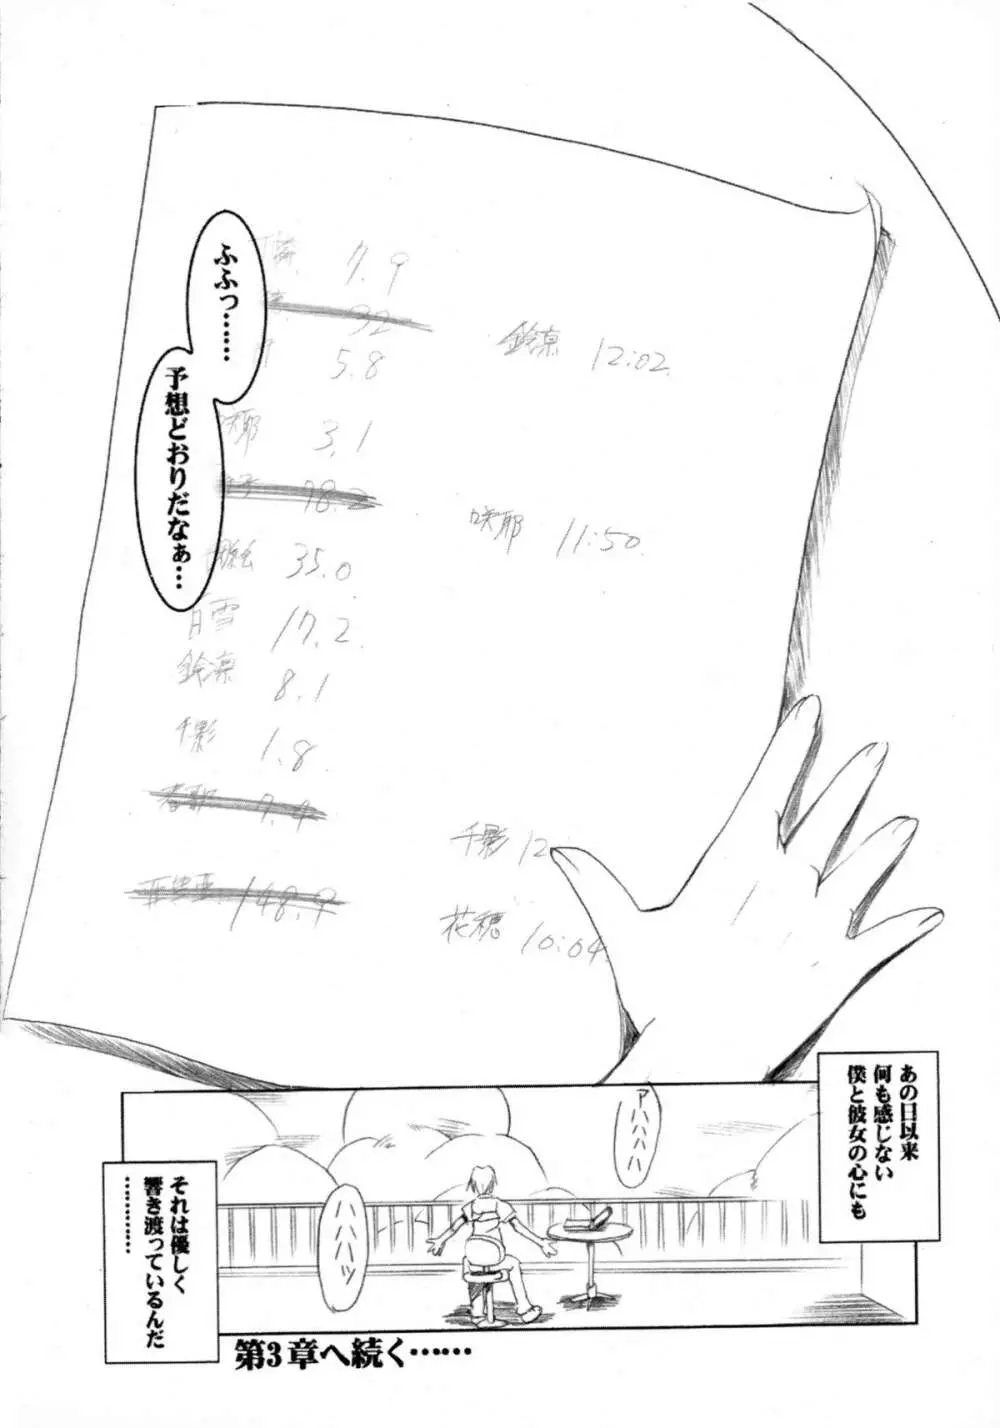 ふふっ……
予想どおりだなぁ…
7.9
92
5.8
3.1
78.2
35.0
17.2
鈴凛 8.1
千影 1.8
春歌 7.4
亜里亜 148.9
鈴凛 12:02
咲耶 11:50
千影 12
花穂 10:04
あの日以来
何も感じない
僕と彼女の心にも
アハハハハ
ハハハハッ
それは優しく
響き渡っているんだ
…………
第3章へ続く……